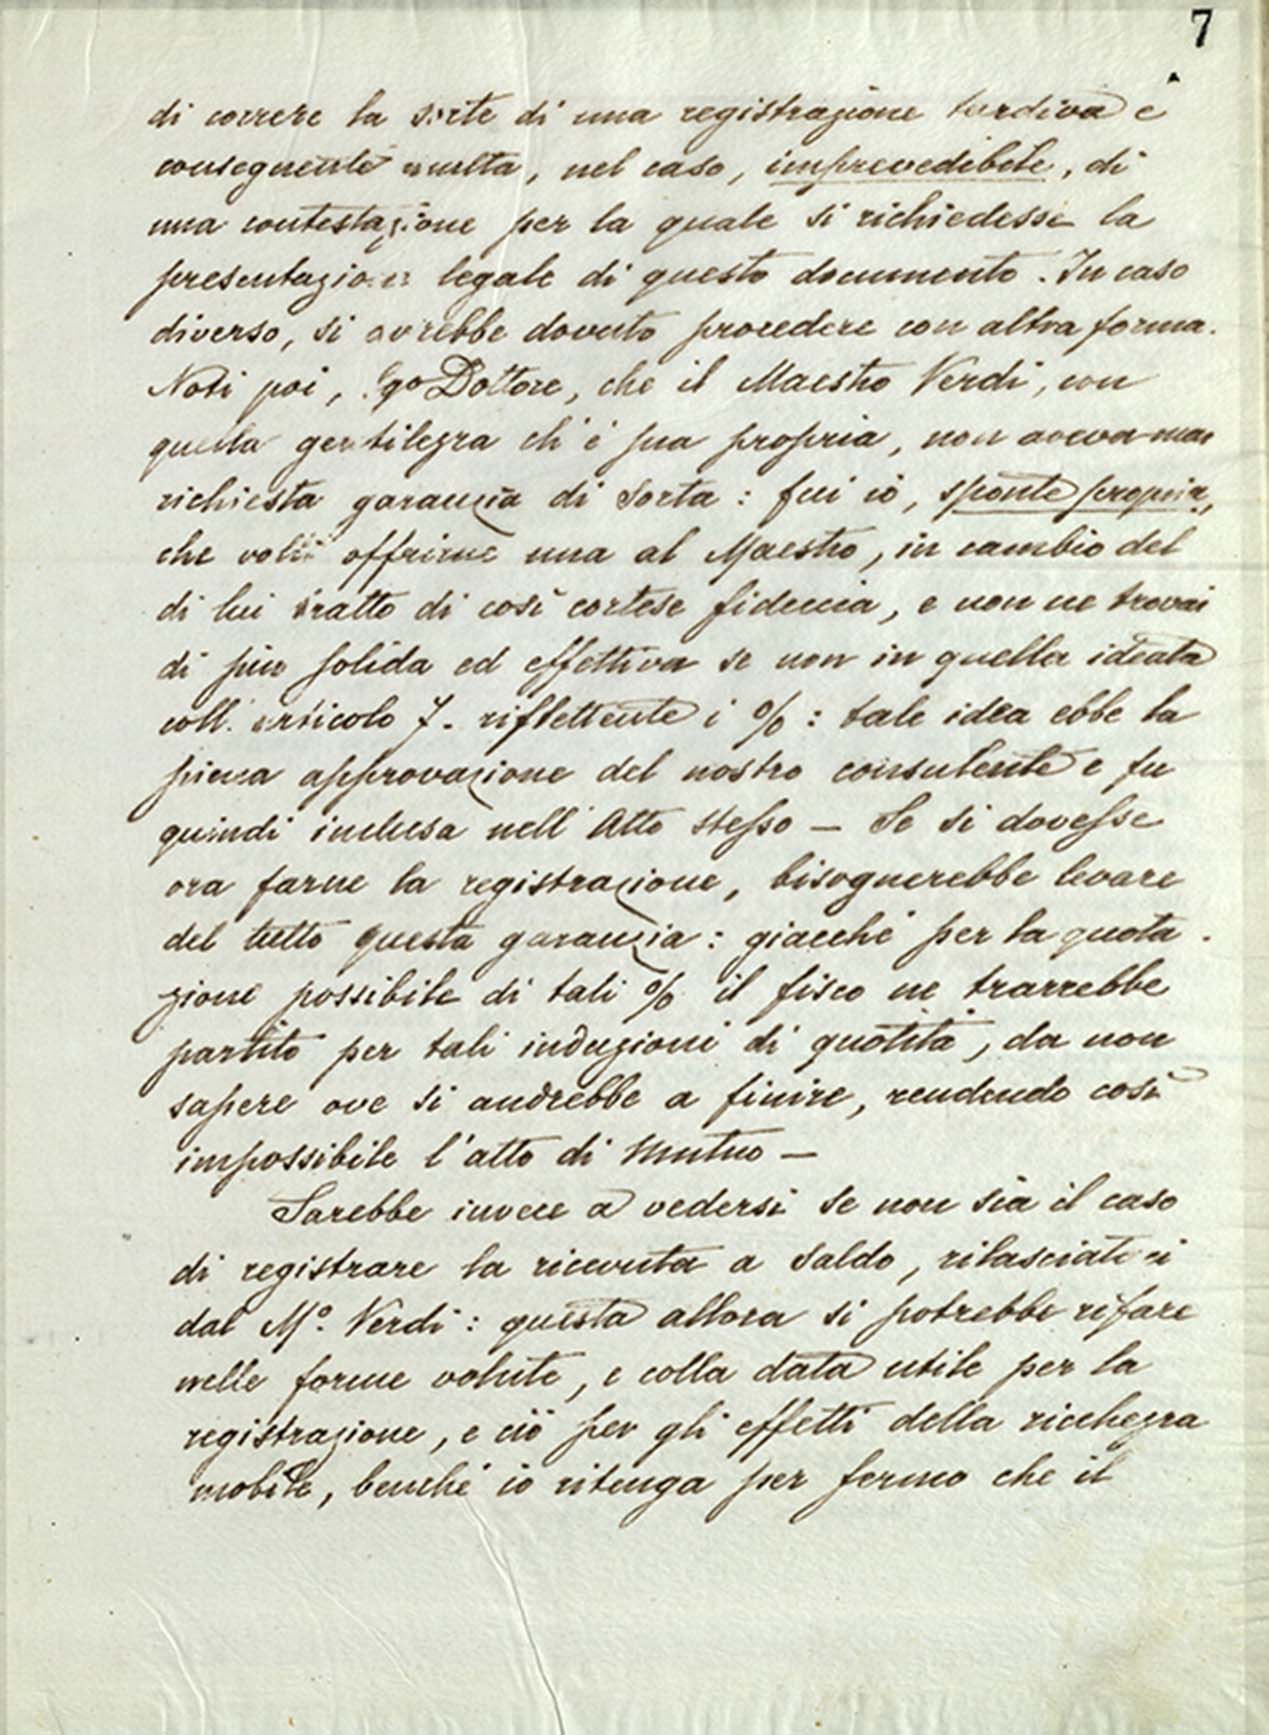 7
di correre la sorte di una registrazione tardiva e
conseguente multa, nel caso, imprevedibile, di
una contestazione per la quale si richiedesse la
presentazione legale di questo documento. In caso
diverso, si avrebbe dovuto procedere con altra forma.
Noti poi, Dottore, che il Maestro Verdi, con
quella gentilezza ch'è sua propria, non aveva mai
richiesta garanzia di sorta: fui io, sponte propria,
che volli offrirne una al Maestro, in cambio del
di lui tratto di così cortese fiducia, e non ne trovai
di più solida ed effettiva se non in quella ideata
coll'articolo 7. riflettente i %: tale idea ebbe la
piena approvazione del nostro consulente e fu
quindi inclusa nell'Atto stesso — Se si dovesse
ora farne la registrazione, bisognerebbe levare
del tutto questa garanzia: giacchè per la quota-
zione possibile di tali % il fisco ne trarrebbe
partito per tali induzioni di quotità, da non
sapere ove si andrebbe a finire, rendendo così
impossibile l'atto di Mutuo —
Sarebbe invece a vedersi se non sia il caso
di registrare la ricevuta a saldo, rilasciataci
dal Mº. Verdi: questa allora si potrebbe rifare
nelle forme volute, e colla data utile per la
registrazione, e ciò per gli effetti della ricchezza
mobile, benchè io ritenga per fermo che il